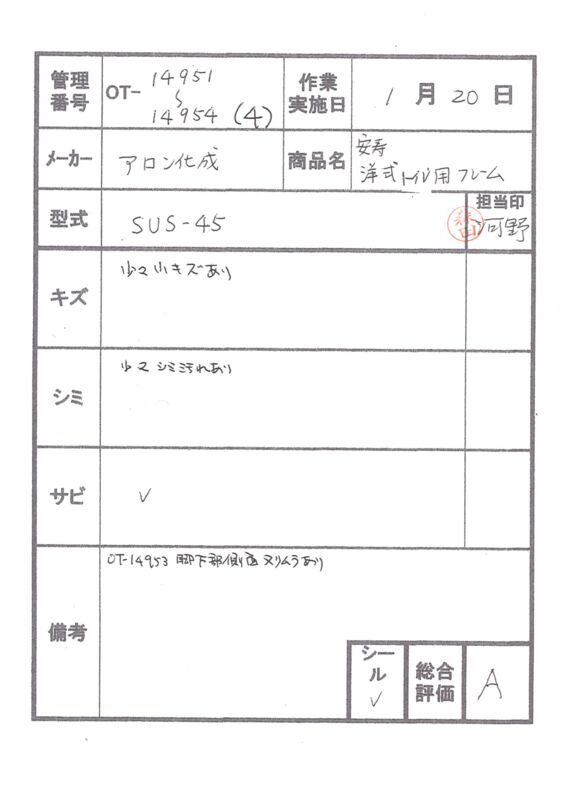 管理番号
OT- 14951
〜
14954 (4)
作業実施日
1 月 20 日
メーカー
アロン化成
商品名
安寿
洋式トイレ用フレーム
型式
SUS-45
担当印
河野
キズ
少々小キズあり
シミ
少々シミ汚れあり
サビ
✓
備考
OT-14953 脚下部側面ヌリムラあり
シール
✓
総合評価
A